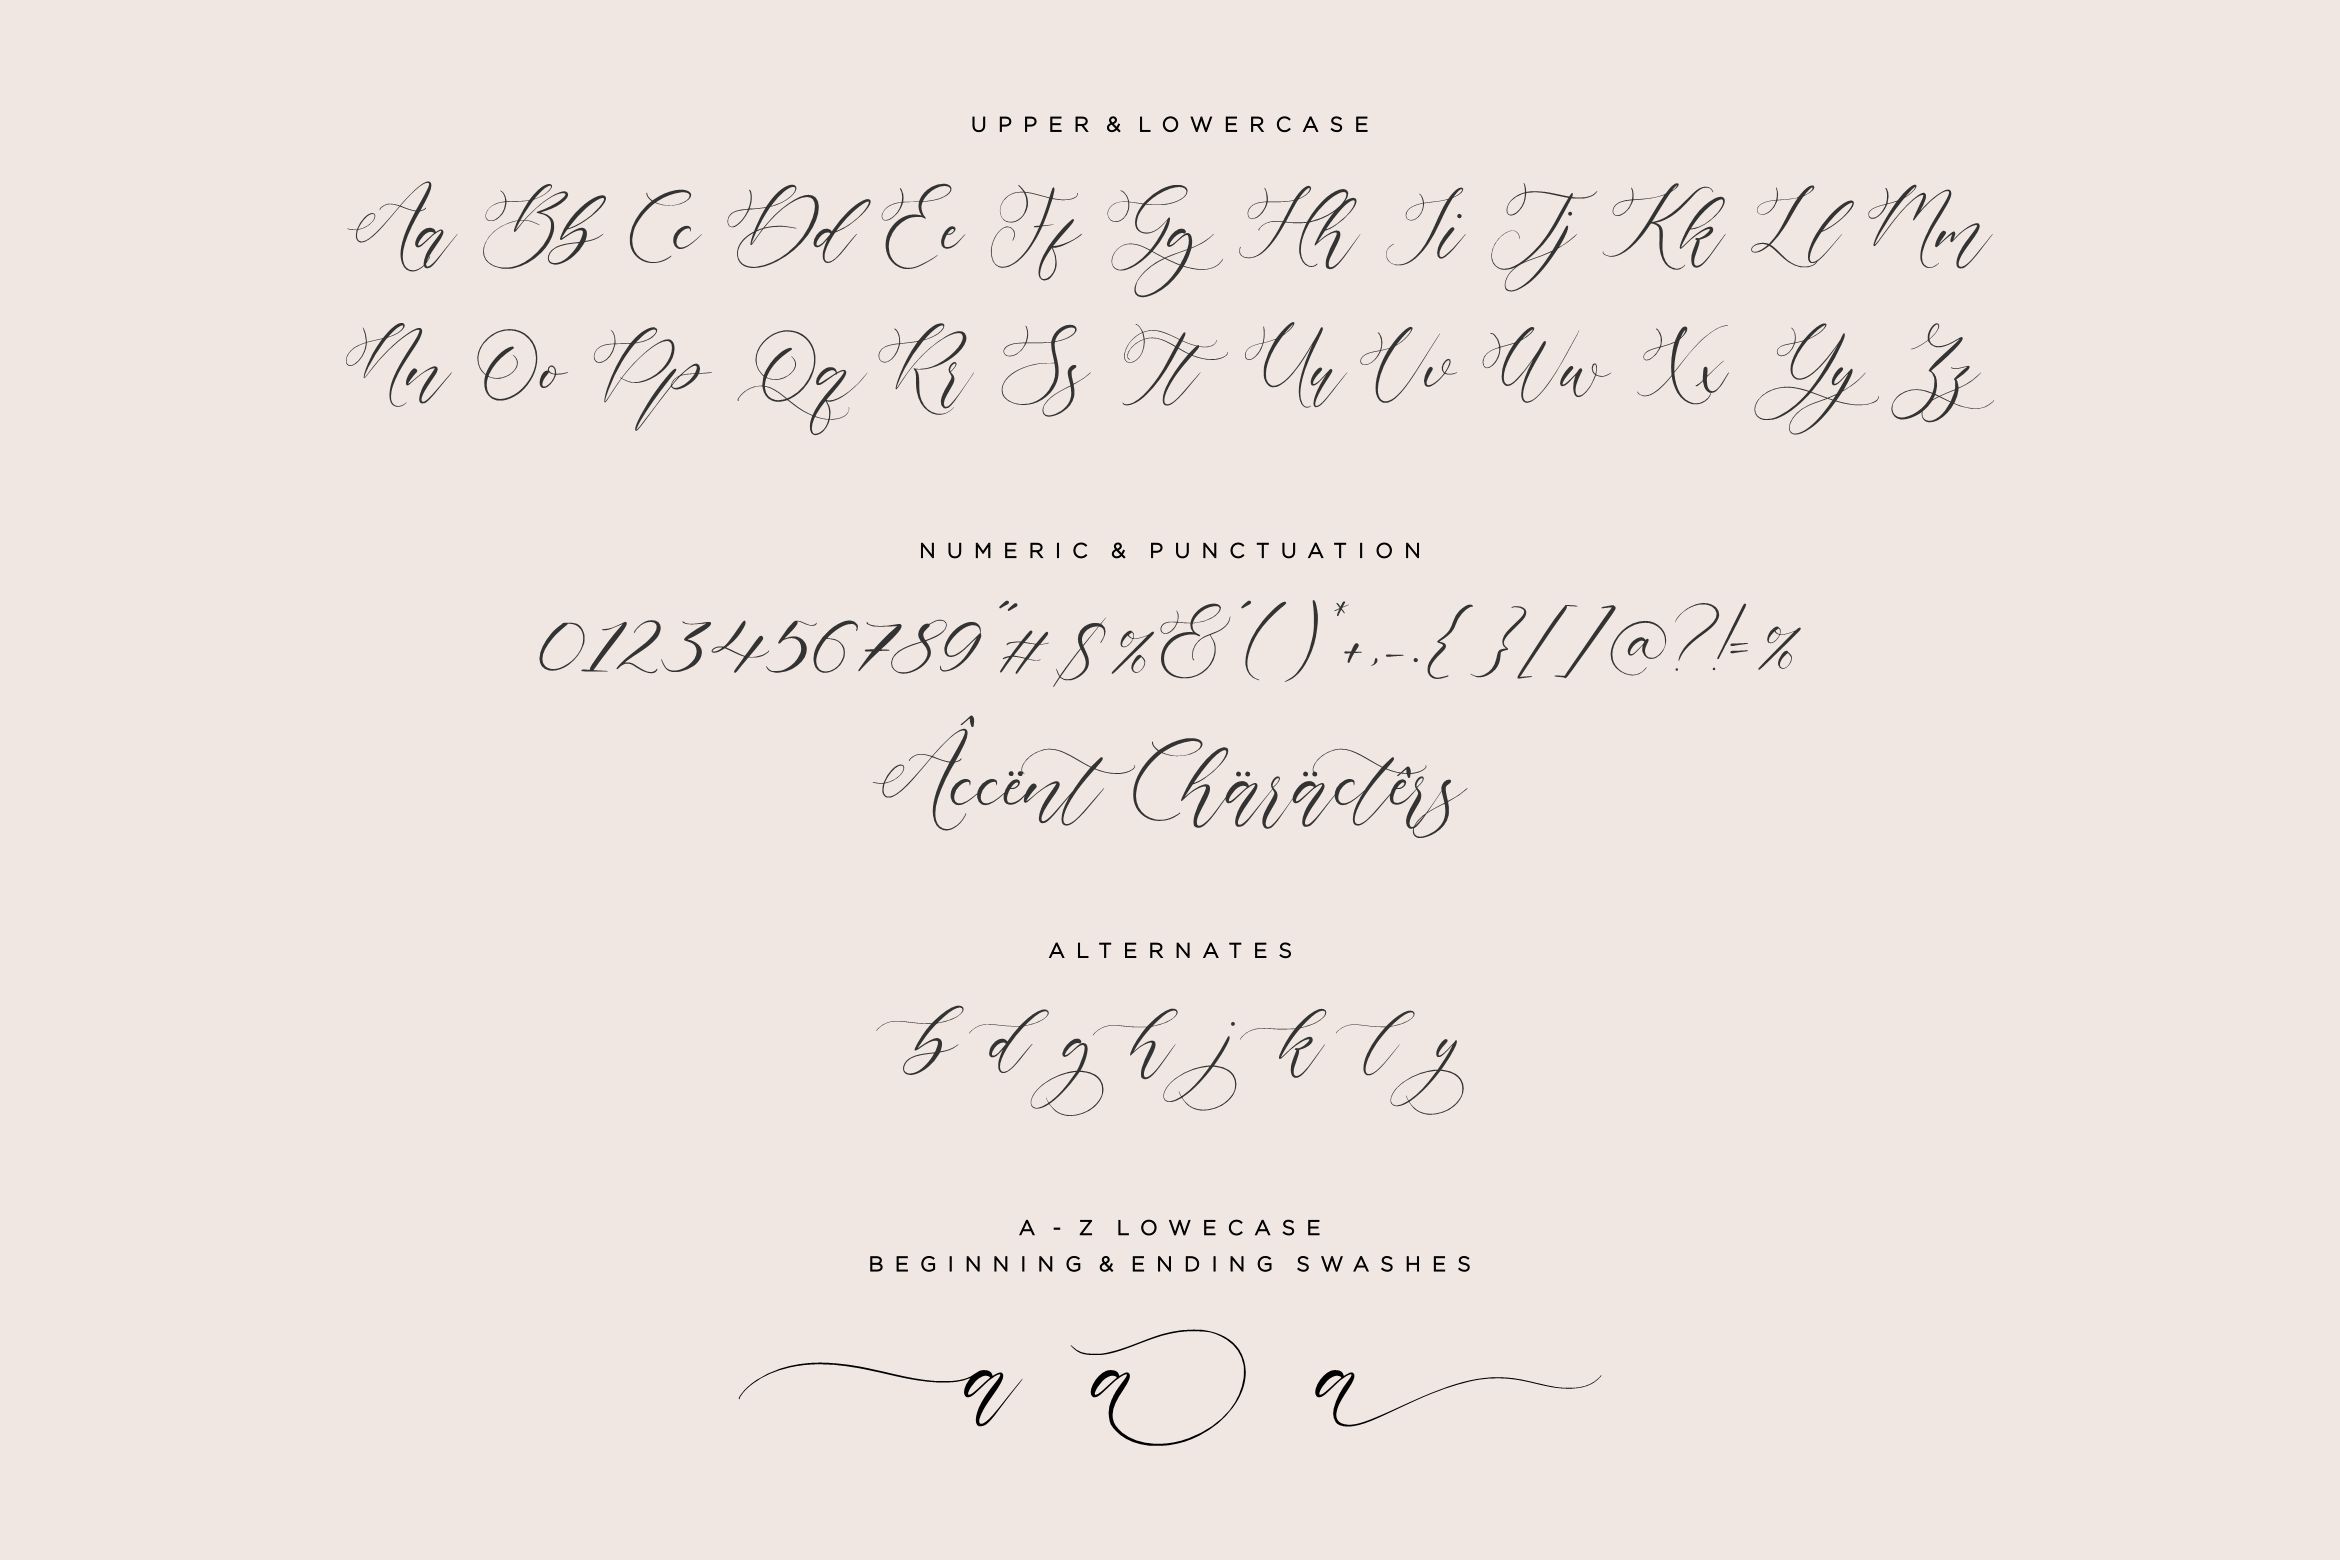 UPPER & LOWERCASE
Aa Bb Cc Dd Ee Ff Gg Hh Ii Jj Kk Ll Mm
Nn Oo Pp Qq Rr Ss Tt Uu Vv Ww Xx Yy Zz
NUMERIC & PUNCTUATION
0123456789"#$%&'()*+,-.{}[]@?!=%
Âccënt Chäräctêrs
ALTERNATES
b d g h j k l y
A - Z LOWECASE
BEGINNING & ENDING SWASHES
a a a